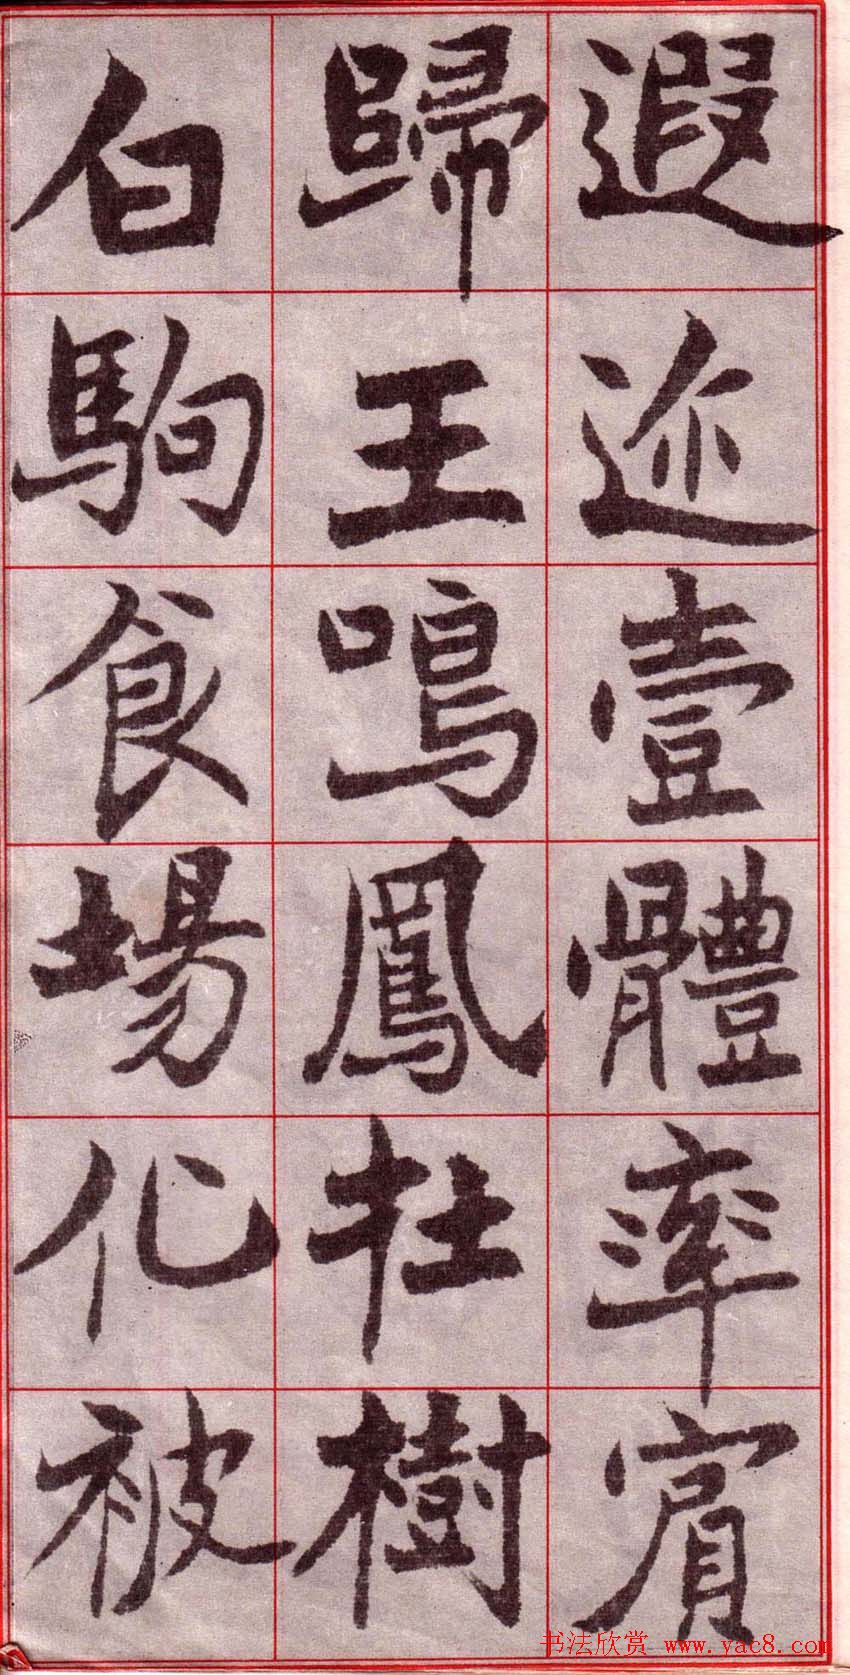 遐迩壹體率賓
歸王鳴鳳扗樹
白駒食場化被
书法欣赏 www.yac8.com